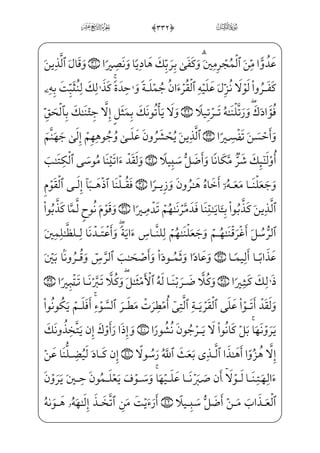 الجزء التاسع عشر ﴿٣٣٢﴾ سورة الفرقان
عَدُوًّا مِّنَ ٱلْمُجْرِمِينَ ۗ وَكَفَىٰ بِرَبِّكَ هَادِيًا وَنَصِيرًا ۝٣١ وَقَالَ ٱلَّذِينَ
كَفَرُوا۟ لَوْلَا نُزِّلَ عَلَيْهِ ٱلْقُرْءَانُ جُمْلَةً وَٰحِدَةً ۚ كَذَٰلِكَ لِنُثَبِّتَ بِهِۦ
فُؤَادَكَ ۖ وَرَتَّلْنَٰهُ تَرْتِيلًا ۝٣٢ وَلَا يَأْتُونَكَ بِمَثَلٍ إِلَّا جِئْنَٰكَ بِٱلْحَقِّ
وَأَحْسَنَ تَفْسِيرًا ۝٣٣ ٱلَّذِينَ يُحْشَرُونَ عَلَىٰ وُجُوهِهِمْ إِلَىٰ جَهَنَّمَ
أُو۟لَٰٓئِكَ شَرٌّ مَّكَانًا وَأَضَلُّ سَبِيلًا ۝٣٤ وَلَقَدْ ءَاتَيْنَا مُوسَى ٱلْكِتَٰبَ
وَجَعَلْنَا مَعَهُۥٓ أَخَاهُ هَٰرُونَ وَزِيرًا ۝٣٥ فَقُلْنَا ٱذْهَبَآ إِلَى ٱلْقَوْمِ
ٱلَّذِينَ كَذَّبُوا۟ بِـَٔايَٰتِنَا فَدَمَّرْنَٰهُمْ تَدْمِيرًا ۝٣٦ وَقَوْمَ نُوحٍ لَّمَّا كَذَّبُوا۟
ٱلرُّسُلَ أَغْرَقْنَٰهُمْ وَجَعَلْنَٰهُمْ لِلنَّاسِ ءَايَةً ۖ وَأَعْتَدْنَا لِلظَّٰلِمِينَ
عَذَابًا أَلِيمًا ۝٣٧ وَعَادًا وَثَمُودَا۟ وَأَصْحَٰبَ ٱلرَّسِّ وَقُرُونًۢا بَيْنَ
ذَٰلِكَ كَثِيرًا ۝٣٨ وَكُلًّا ضَرَبْنَا لَهُ ٱلْأَمْثَٰلَ ۖ وَكُلًّا تَبَّرْنَا تَتْبِيرًا ۝٣٩
وَلَقَدْ أَتَوْا۟ عَلَى ٱلْقَرْيَةِ ٱلَّتِىٓ أُمْطِرَتْ مَطَرَ ٱلسَّوْءِ ۚ أَفَلَمْ يَكُونُوا۟
يَرَوْنَهَا ۚ بَلْ كَانُوا۟ لَا يَرْجُونَ نُشُورًا ۝٤٠ وَإِذَا رَأَوْكَ إِن يَتَّخِذُونَكَ
إِلَّا هُزُوًا أَهَٰذَا ٱلَّذِى بَعَثَ ٱللَّهُ رَسُولًا ۝٤١ إِن كَادَ لَيُضِلُّنَا عَنْ
ءَالِهَتِنَا لَوْلَآ أَن صَبَرْنَا عَلَيْهَا ۚ وَسَوْفَ يَعْلَمُونَ حِينَ يَرَوْنَ
ٱلْعَذَابَ مَنْ أَضَلُّ سَبِيلًا ۝٤٢ أَرَءَيْتَ مَنِ ٱتَّخَذَ إِلَٰهَهُۥ هَوَىٰهُ